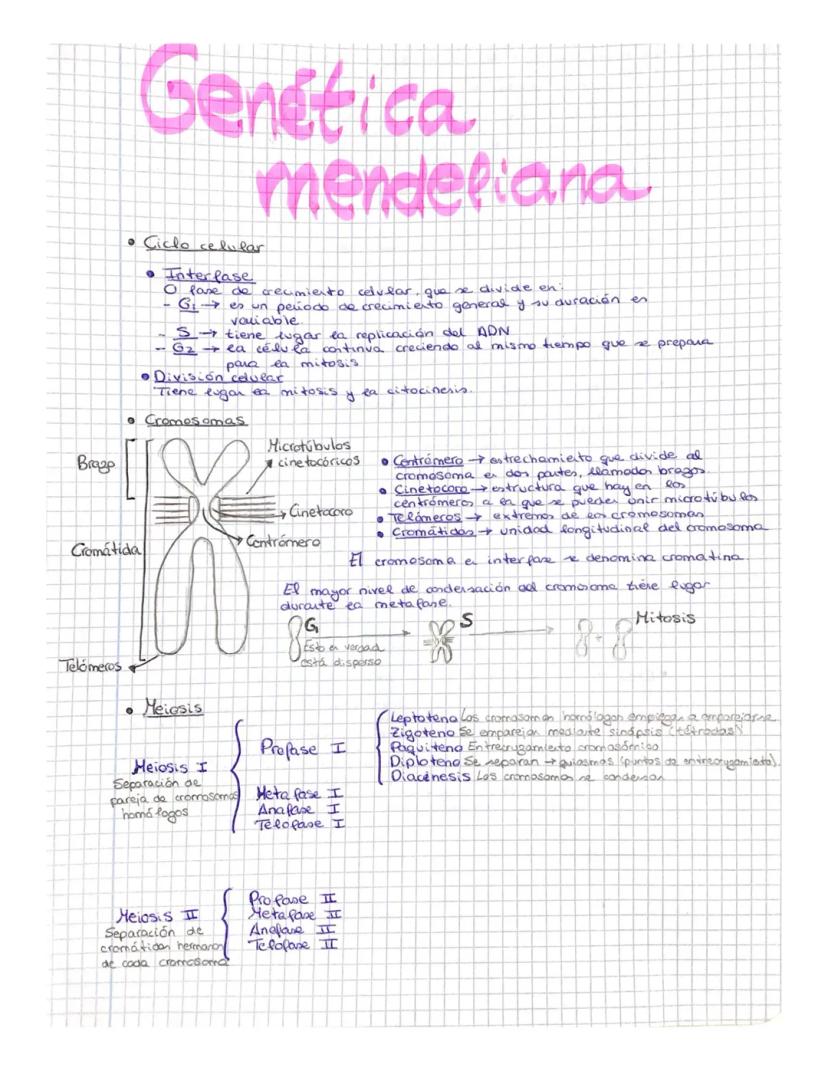 Genética
mendeliana
• Ciclo celular
• Interfase
O fase de crecimiento celular, que se divide en:
- G1 → es un periodo de crecimiento general y su duración es
variable.
- S → tiene lugar la replicación del ADN
- G2 → la célula continua creciendo al mismo tiempo que se prepara
para la mitosis
• División celular
Tiene lugar la mitosis y la citocinesis.
• Cromosomas
Brazo
Cromátida
Telómeros
Microtúbulos
cinetocóricos
Cinetocoro
Centrómero
• Centrómero → estrechamiento que divide al
cromosoma en dos partes, llamados brazos.
• Cinetocoro → estructura que hay en los
centrómeros a la que se pueden unir microtúbulos
• Telómeros → extremos de los cromosomas
• Cromátidas → unidad longitudinal del cromosoma
El cromosoma en interfase se denomina cromatina.
El mayor nivel de condensación del cromosoma tiene lugar
durante la metafase.
G
Esto en verdad
está disperso
S
Mitosis
• Meiosis
Meiosis I
Separación de
pareja de cromosomas
homólogos
Profase I
Leptoteno Los cromosomas homólogos empiezan a emparejarse
Zigoteno Se emparejan mediante sinápsis (tétradas)
Paquiteno Entrecruzamiento cromosómico
Diploteno Se separan → quiasmas (puntos de entrecruzamiento).
Diacinesis Los cromosomas se condensan
Metafase I
Anafase I
Telofase I
Meiosis II
Separación de
cromátidas hermanas
de cada cromosoma
Profase II
Metafase II
Anafase II
Telofase II